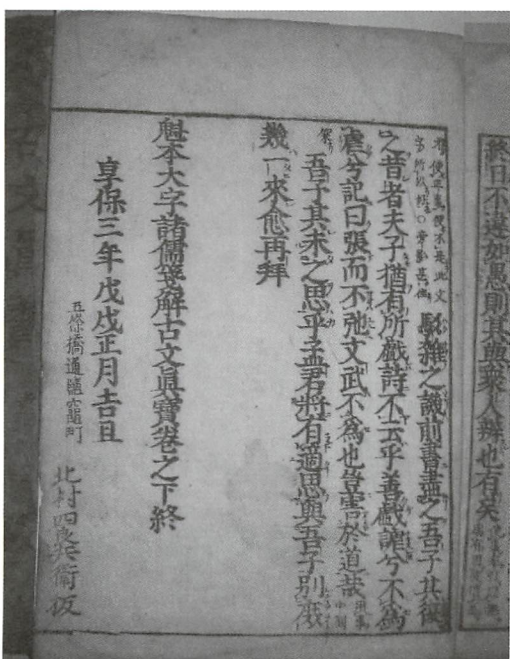 終日不違如愚則其與衆人辯也有矣
駁雜之譏前書盡之吾子其復
之昔者夫子猶有所戲詩不云乎善戲謔兮不爲
虐兮記曰張而不弛文武不爲也豈害於道哉
吾子其未之思乎孟君將有適思與吾子別庶
幾一來愈再拜
魁本大字諸儒箋解古文眞寶卷之下終
享保三年戊戌正月吉旦
五條橋通塩竈町
北村四良兵衛板